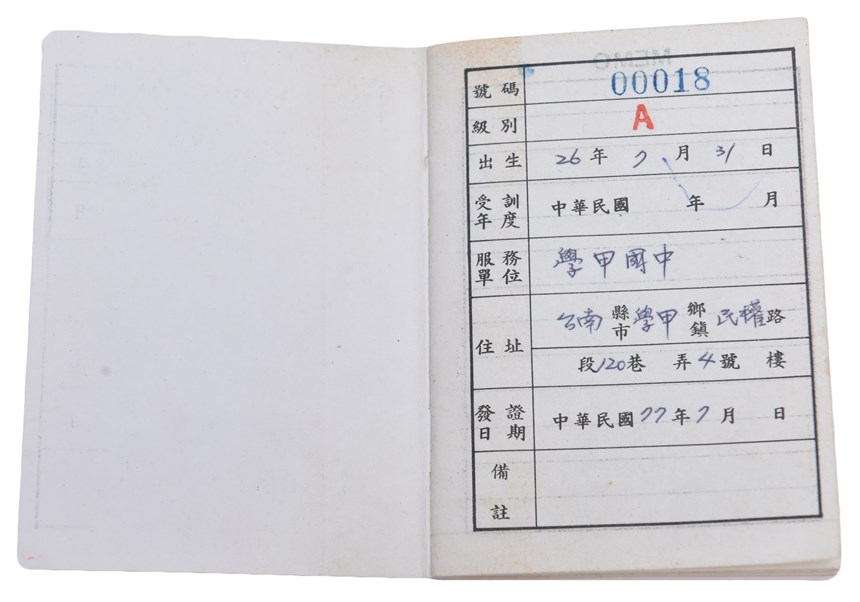 MEMO
號碼 00018
級別 A
出生 26年 7月 31日
受訓年度 中華民國 年 月
服務單位 學甲國中
住址 台南 縣市 學甲 鄉鎮 民權路
段120巷 弄4號 樓
發證日期 中華民國77年7月 日
備註